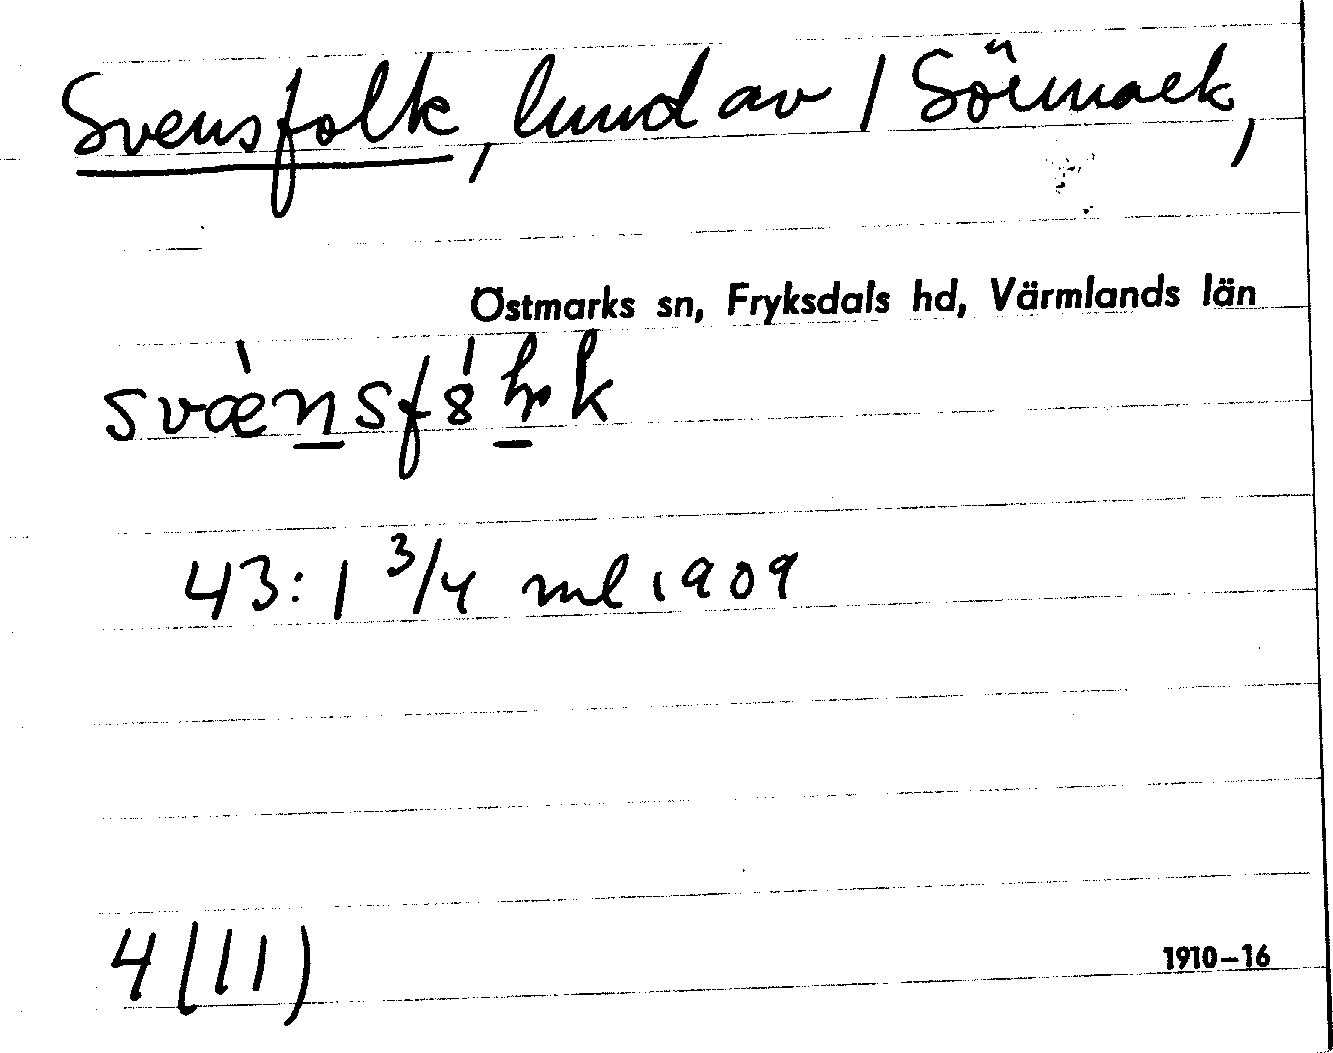 Svensfolk, lund av / Sörmark,
Östmarks sn, Fryksdals hd, Värmlands län
43:1 3/4 ml 1909
4(11)
1910–16